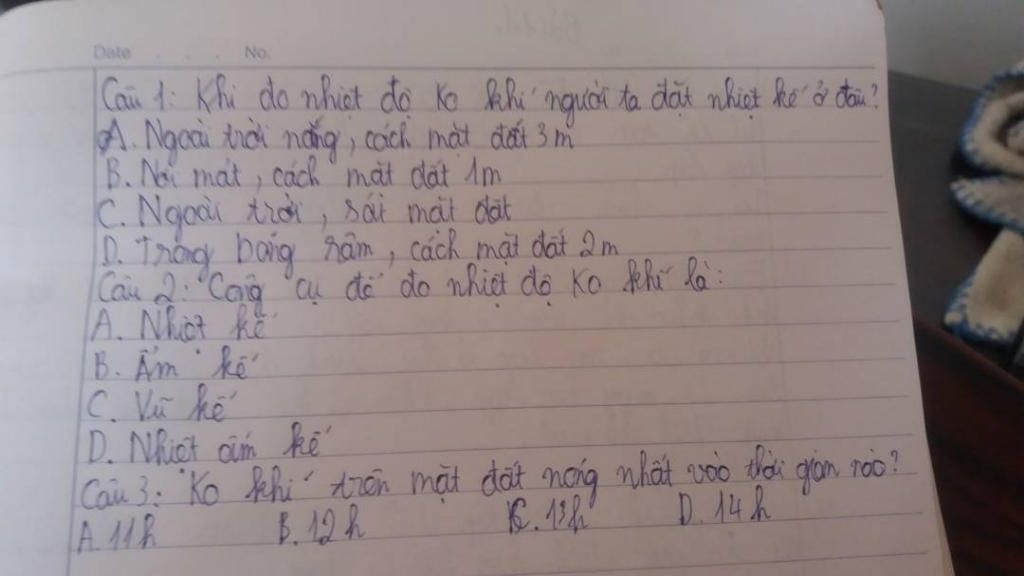 Date . . . . No.
Câu 1: Khi đo nhiệt độ ko khí người ta đặt nhiệt kế ở đâu?
A. Ngoài trời nắng, cách mặt đất 3m
B. Nơi mát, cách mặt đất 1m
C. Ngoài trời, sát mặt đất
D. Trong bóng râm, cách mặt đất 2m
Câu 2: Công cụ để đo nhiệt độ ko khí là:
A. Nhiệt kế
B. Ẩm kế
C. Vũ kế
D. Nhiệt ẩm kế
Câu 3: Ko khí trên mặt đất nóng nhất vào thời gian nào?
A. 11h B. 12h C. 13h D. 14h